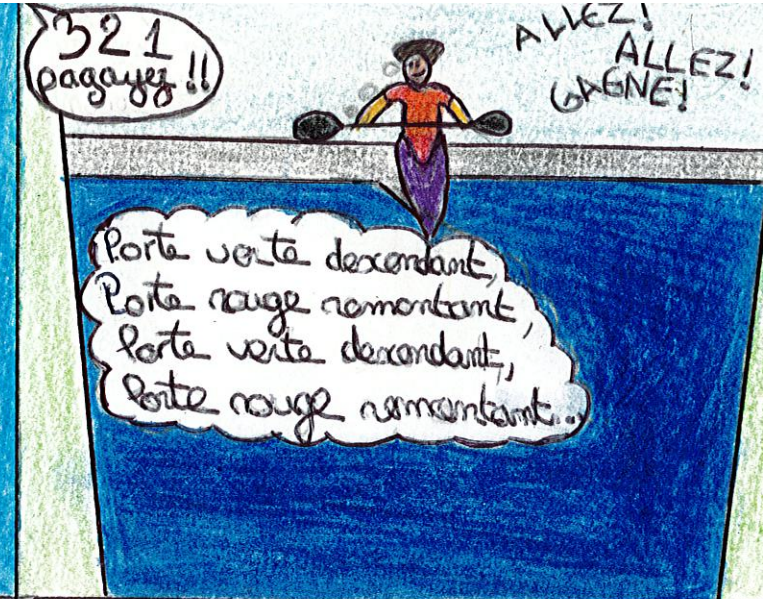 3 2 1
pagayez !!
ALLEZ!
ALLEZ!
GAGNE!
Porte verte descendant,
Porte rouge remontant,
Porte verte descendant,
Porte rouge remontant...